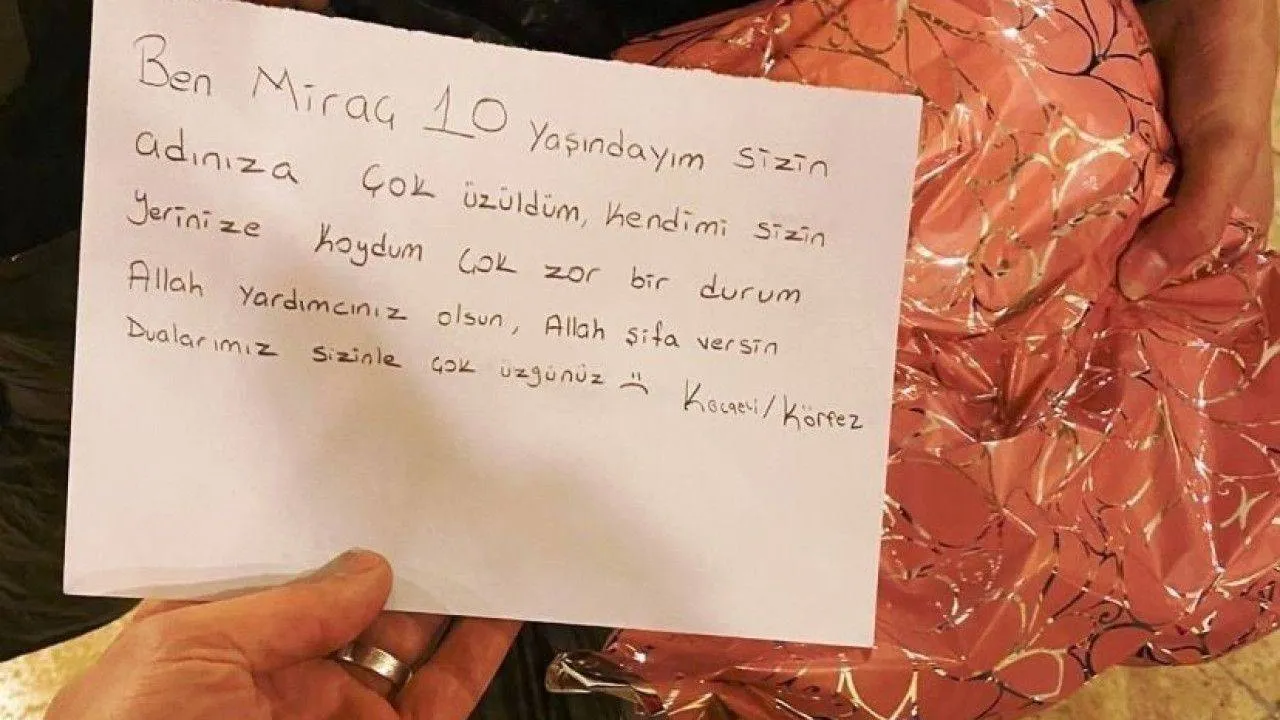 Ben Miraç 10 yaşındayım sizin
adınıza çok üzüldüm, kendimi sizin
yerinize koydum çok zor bir durum
Allah yardımcınız olsun, Allah şifa versin
Dualarımız sizinle çok üzgünüz :( Kocaeli/Körfez